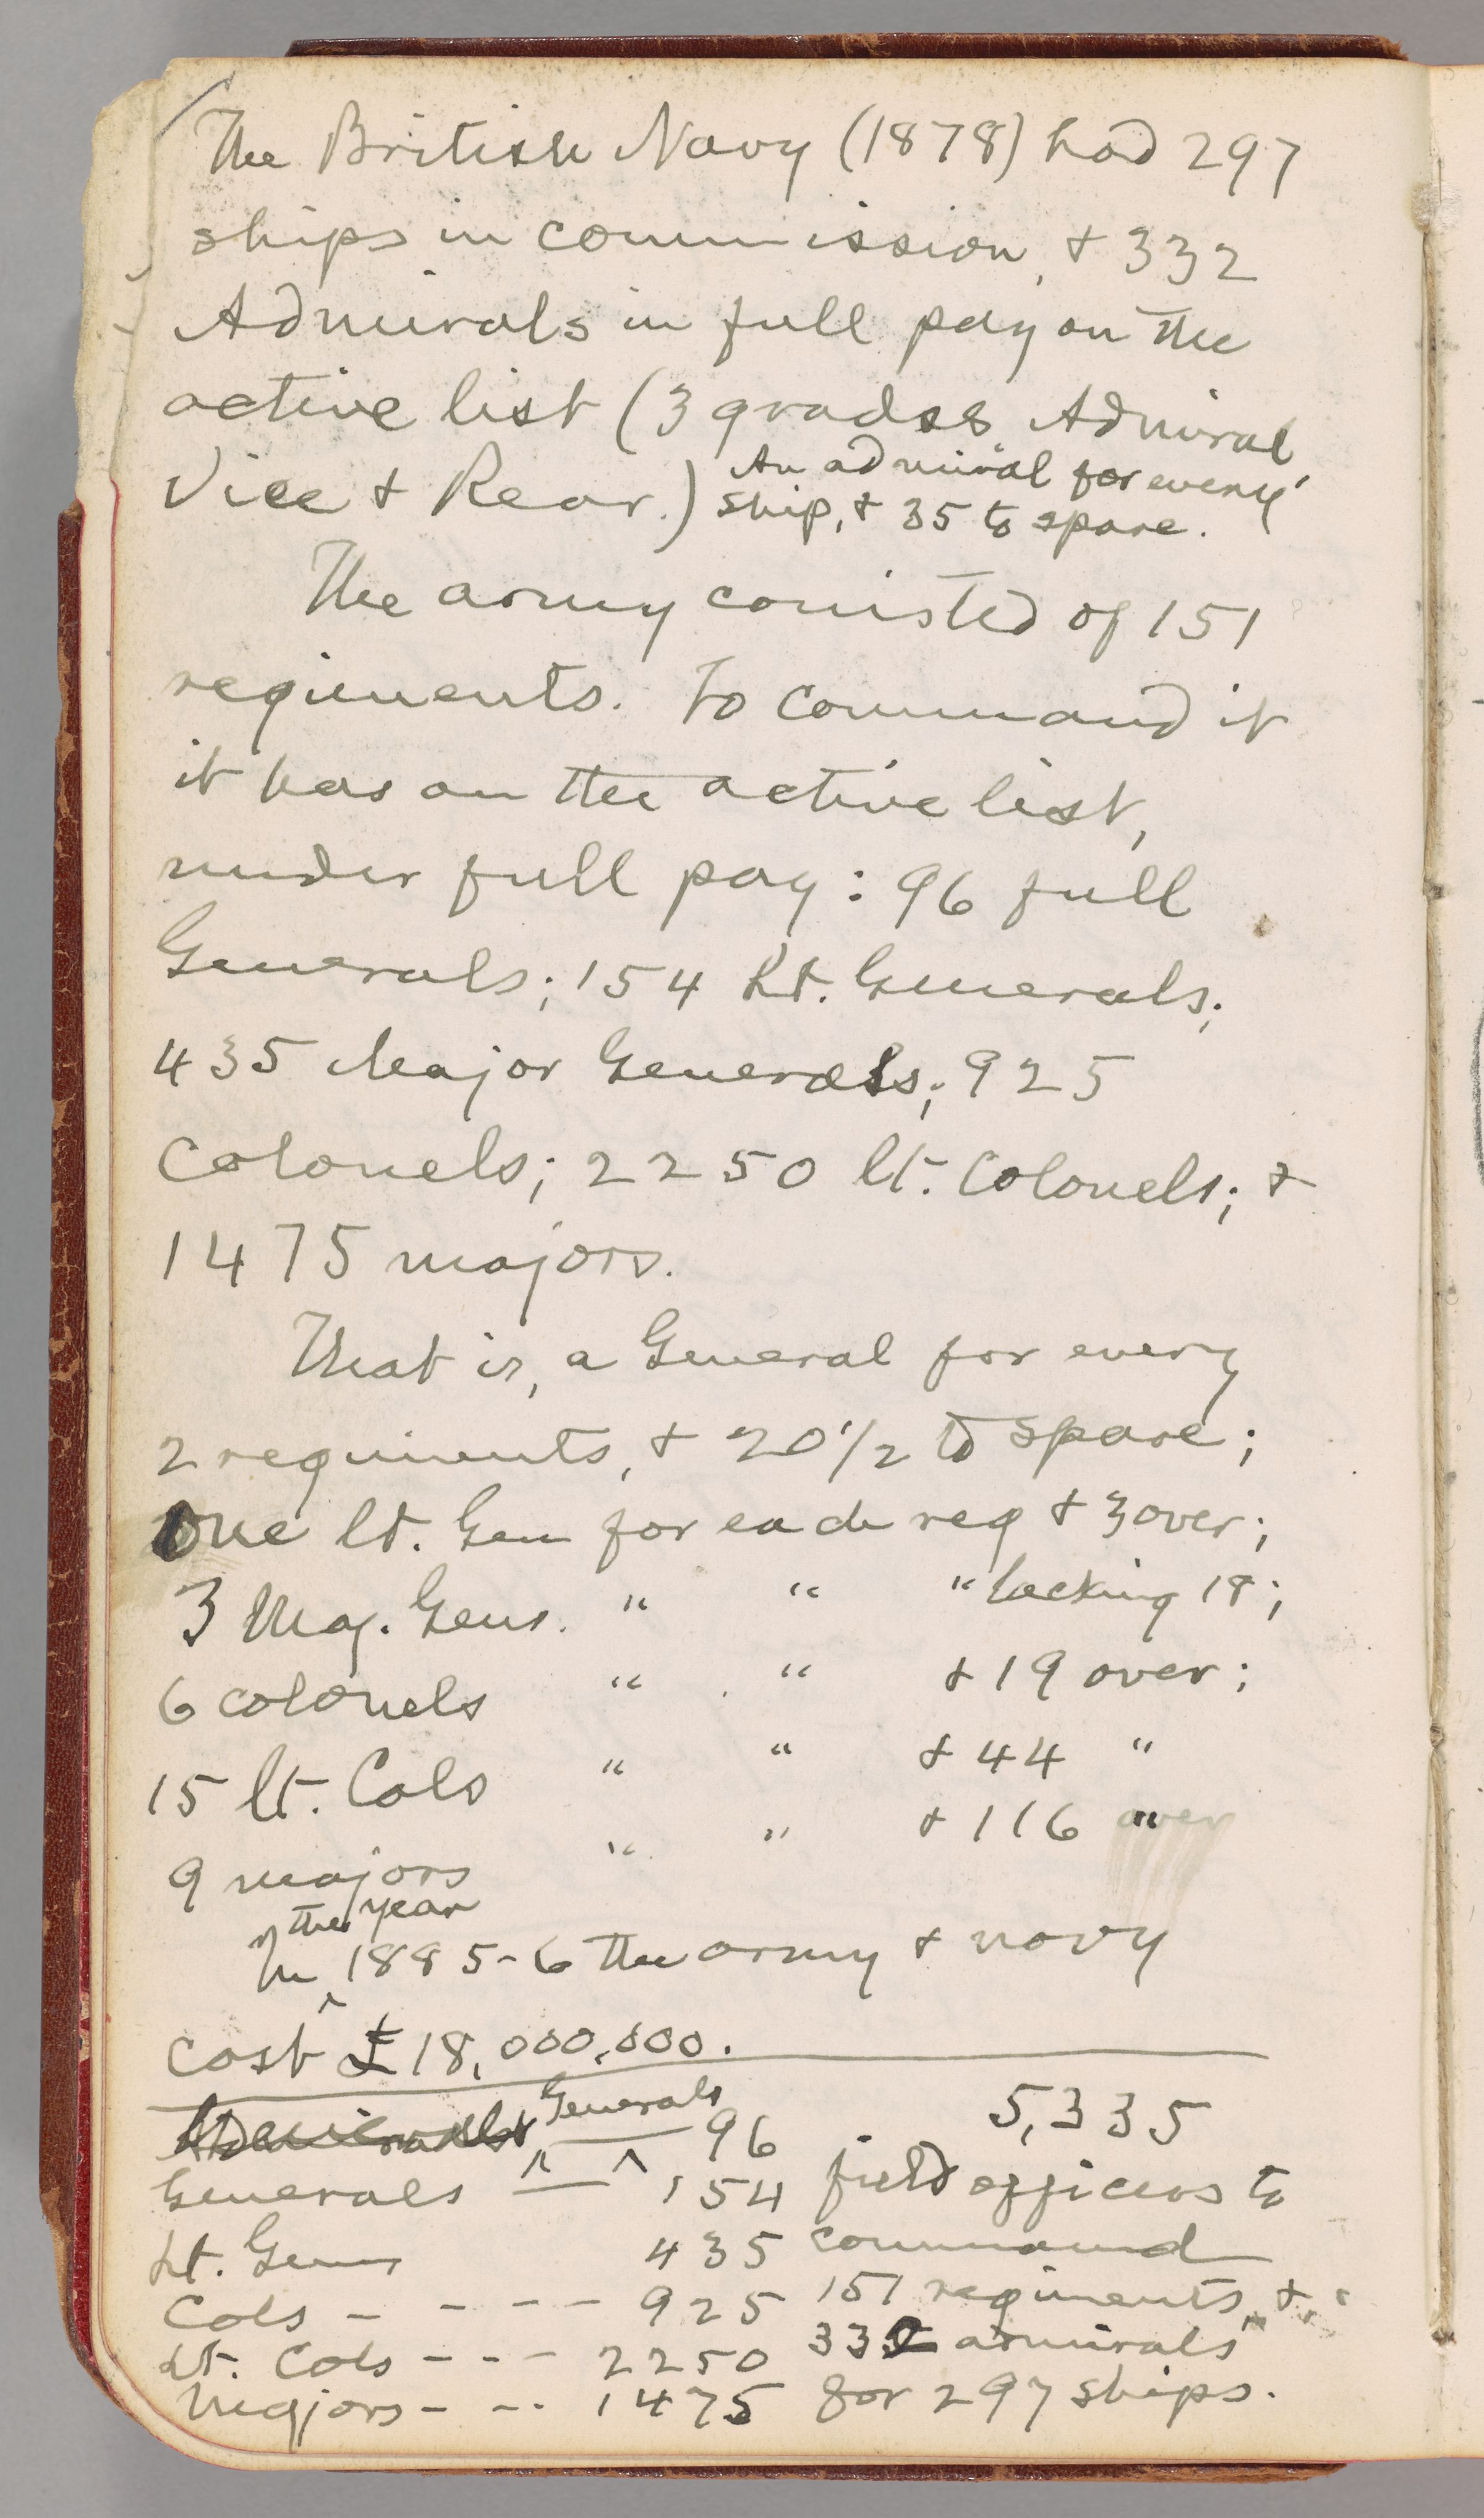 The British Navy (1878) had 297
ships in commission, & 332
Admirals in full pay on the
active list (3 grades Admiral,
Vice & Rear.) An admiral for every
ship, & 35 to spare.
The army consisted of 151
regiments. To command it
it has on the active list,
under full pay: 96 full
Generals; 154 Lt. Generals;
435 Major Generals; 925
Colonels; 2250 lt. Colonels; &
1475 majors.
That is, a General for every
2 regiments, & 20 1/2 to spare;
One lt. Gen for each reg & 3 over;
3 Maj. Gens. " " " lacking 18;
6 colonels " " & 19 over;
15 lt. Cols " " & 44 "
9 majors " " & 116 "
In the year 1885-6 the army & navy
cost £18,000,000.
Generals — 96
Generals — 154
Lt. Gens 435
Cols - - - - 925
Lt. Cols - - - 2250
Majors - - - 1475
5,335
field officers to
command
151 regiments, &
332 admirals
for 297 ships.